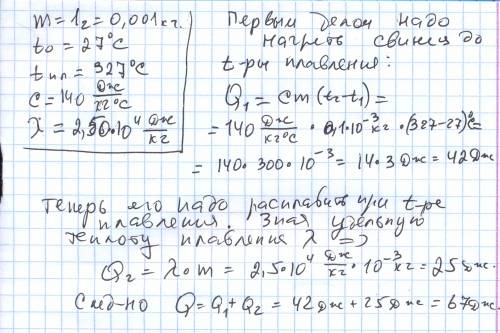 m = 1г = 0,001 кг.
t₀ = 27°C
tпл = 327°C
c = 140 Дж/кг°C
λ = 2,50·10⁴ Дж/кг
Первым делом надо
нагреть свинец до
t-ры плавления:
Q₁ = cm(t₂-t₁) =
= 140 Дж/кг°C · 0,1·10⁻³ кг · (327-27)°C
= 140 · 300 · 10⁻³ = 14·3 Дж = 42 Дж
Теперь его надо расплавить при t-ре
плавления. Зная удельную
теплоту плавления λ =>
Q₂ = λ·m = 2,5·10⁴ Дж/кг · 10⁻³ кг = 25 Дж.
След-но Q = Q₁ + Q₂ = 42 Дж + 25 Дж = 67 Дж.